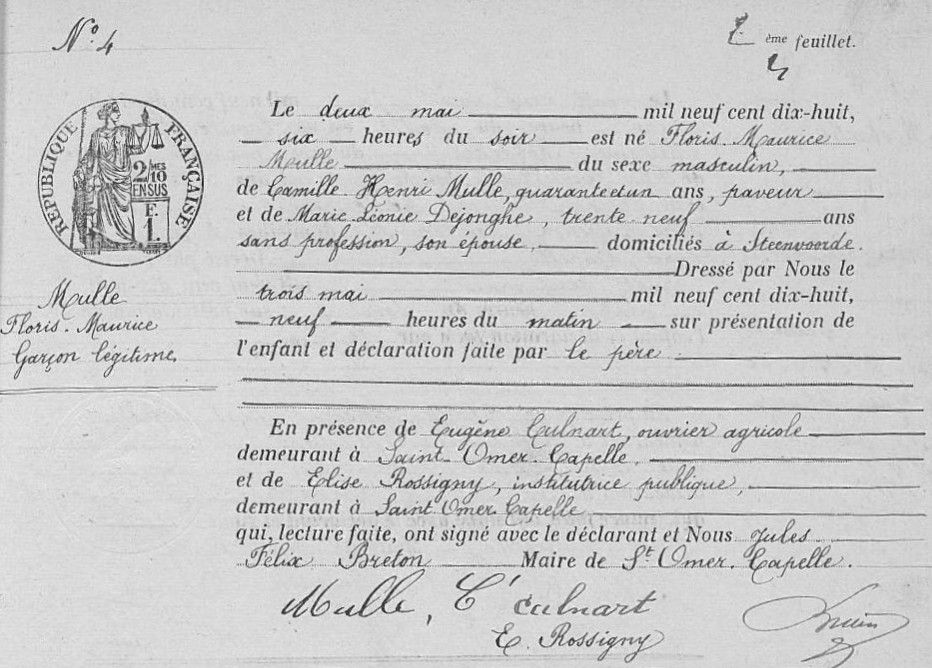 N° 4
2 ème feuillet.
2
RÉPUBLIQUE FRANÇAISE
2/MES
10
EN SUS
F.
1.
Mulle
Floris-Maurice
Garçon légitime
Le deux mai mil neuf cent dix-huit,
six heures du soir est né Floris-Maurice
Mulle du sexe masculin,
de Camille Henri Mulle, quarante et un ans, paveur
et de Marie Léonie Dejonghe, trente neuf ans
sans profession, son épouse, domiciliés à Steenvoorde.
Dressé par Nous le
trois mai mil neuf cent dix-huit,
neuf heures du matin sur présentation de
l'enfant et déclaration faite par le père
En présence de Eugène Culnart, ouvrier agricole
demeurant à Saint-Omer-Capelle.
et de Elise Rossigny, institutrice publique,
demeurant à Saint Omer Capelle
qui, lecture faite, ont signé avec le déclarant et Nous Jules
Félix Breton Maire de St. Omer-Capelle.
Mulle, C E culnart
E. Rossigny